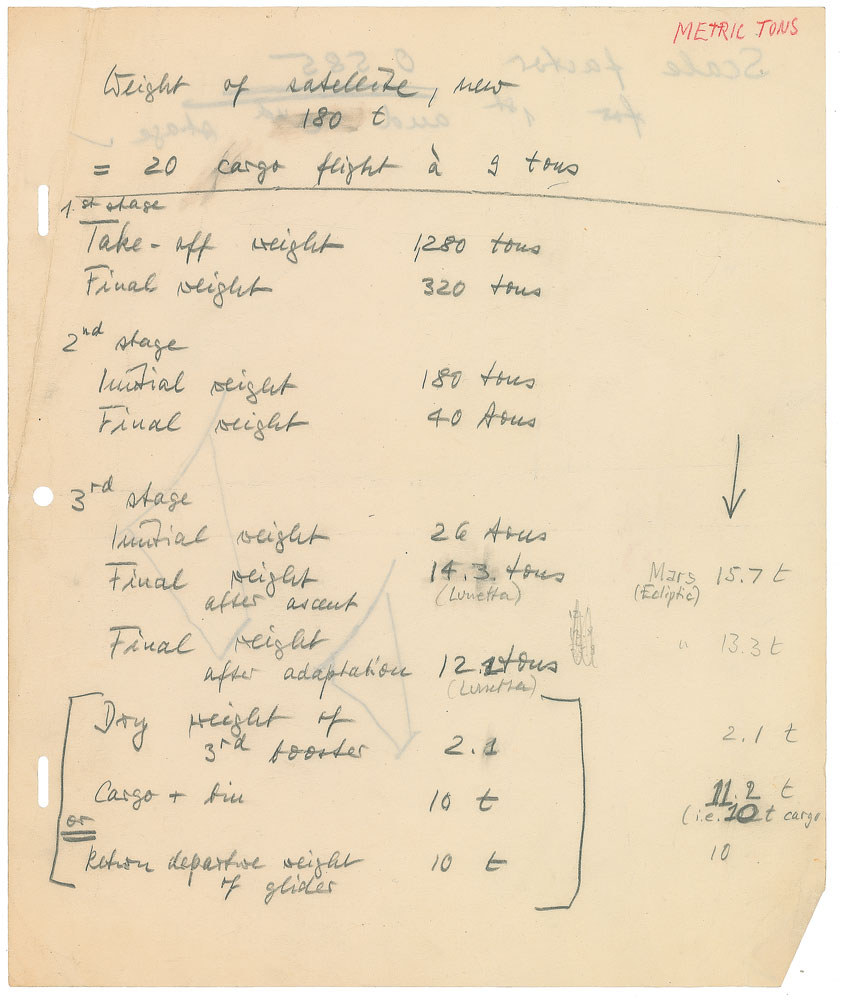 METRIC TONS
Weight of satellite, new
180 t
= 20 cargo flight à 9 tons
1.st stage
Take-off weight 1,280 tons
Final weight 320 tons
2nd stage
Initial weight 180 tons
Final weight 40 tons
3rd stage
Initial weight 26 tons
Final weight 14.3 tons Mars 15.7 t
after ascent (Lunetta) (Ecliptic)
Final weight " 13.3 t
after adaptation 12.1 tons
(Lunetta)
Dry weight of 2.1 t
3rd booster 2.1
Cargo + bin 10 t 11.2 t
or (i.e. 10 t cargo
Return departure weight 10 t 10
of glider
Scale factor 0.585
for 1st and 2nd stage